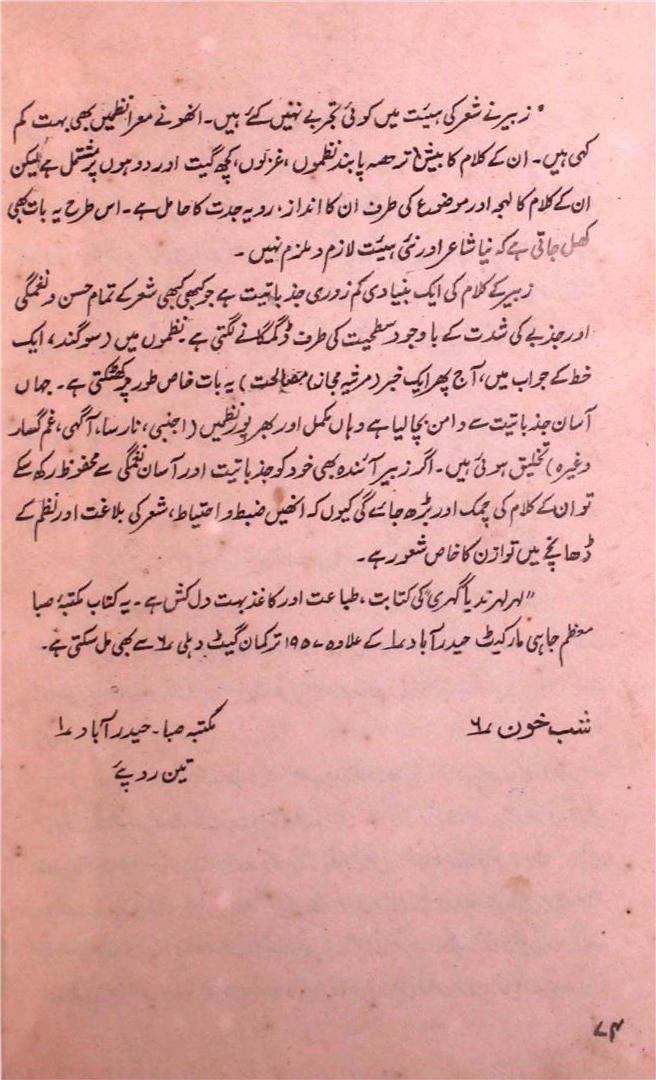 " زبیر نے شعر کی ہیئت میں کوئی تجربے نہیں کئے ہیں۔ انھونے معرا نظمیں بھی بہت کم
کہی ہیں۔ ان کے کلام کا بیشتر حصہ پابند نظموں، غزلوں، کچھ گیت اور دوہوں پر مشتمل ہے لیکن
ان کے کلام کا لہجہ اور موضوع کی طرف ان کا انداز، رویہ جدت کا حامل ہے۔ اس طرح یہ بات بھی
کھل جاتی ہے کہ نیا شاعر اور نئی ہیئت لازم و ملزم نہیں ۔
زبیر کے کلام کی ایک بنیادی کم زوری جذباتیت ہے جو کبھی کبھی شعر کے تمام حسن و نغمگی
اور جذبے کی شدت کے باوجود سطحیت کی طرف ڈگمگانے لگتی ہے۔ نظموں میں (سوگند، ایک
خط کے جواب میں، آج پھر ایک خبر (مرثیہ مجاز) مصالحت) یہ بات خاص طور پر کھٹکتی ہے۔ جہاں
آسان جذباتیت سے دامن بچالیا ہے وہاں مکمل اور بھرپور نظمیں (اجنبی، نارسا، آگہی، غم گسار
وغیرہ) تخلیق ہوئی ہیں۔ اگر زبیر آئندہ بھی خود کو جذباتیت اور آسان نغمگی سے محفوظ رکھ سکے
تو ان کے کلام کی چمک اور بڑھ جائے گی کیوں کہ انھیں ضبط و احتیاط، شعر کی بلاغت اور نظم کے
ڈھانچے میں توازن کا خاص شعور ہے۔
"لہر لہر ندیا گہری" کی کتابت، طباعت اور کاغذ بہت دل کش ہے۔ یہ کتاب مکتبۂ صبا
معظم جاہی مارکیٹ حیدرآباد ۱؍ کے علاوہ ۱۹۵۷ ترکمان گیٹ دہلی ۶؍ سے بھی مل سکتی ہے۔
شب خون ۶؍
مکتبہ صبا۔ حیدرآباد ۱؍
تین روپئے
۷۴